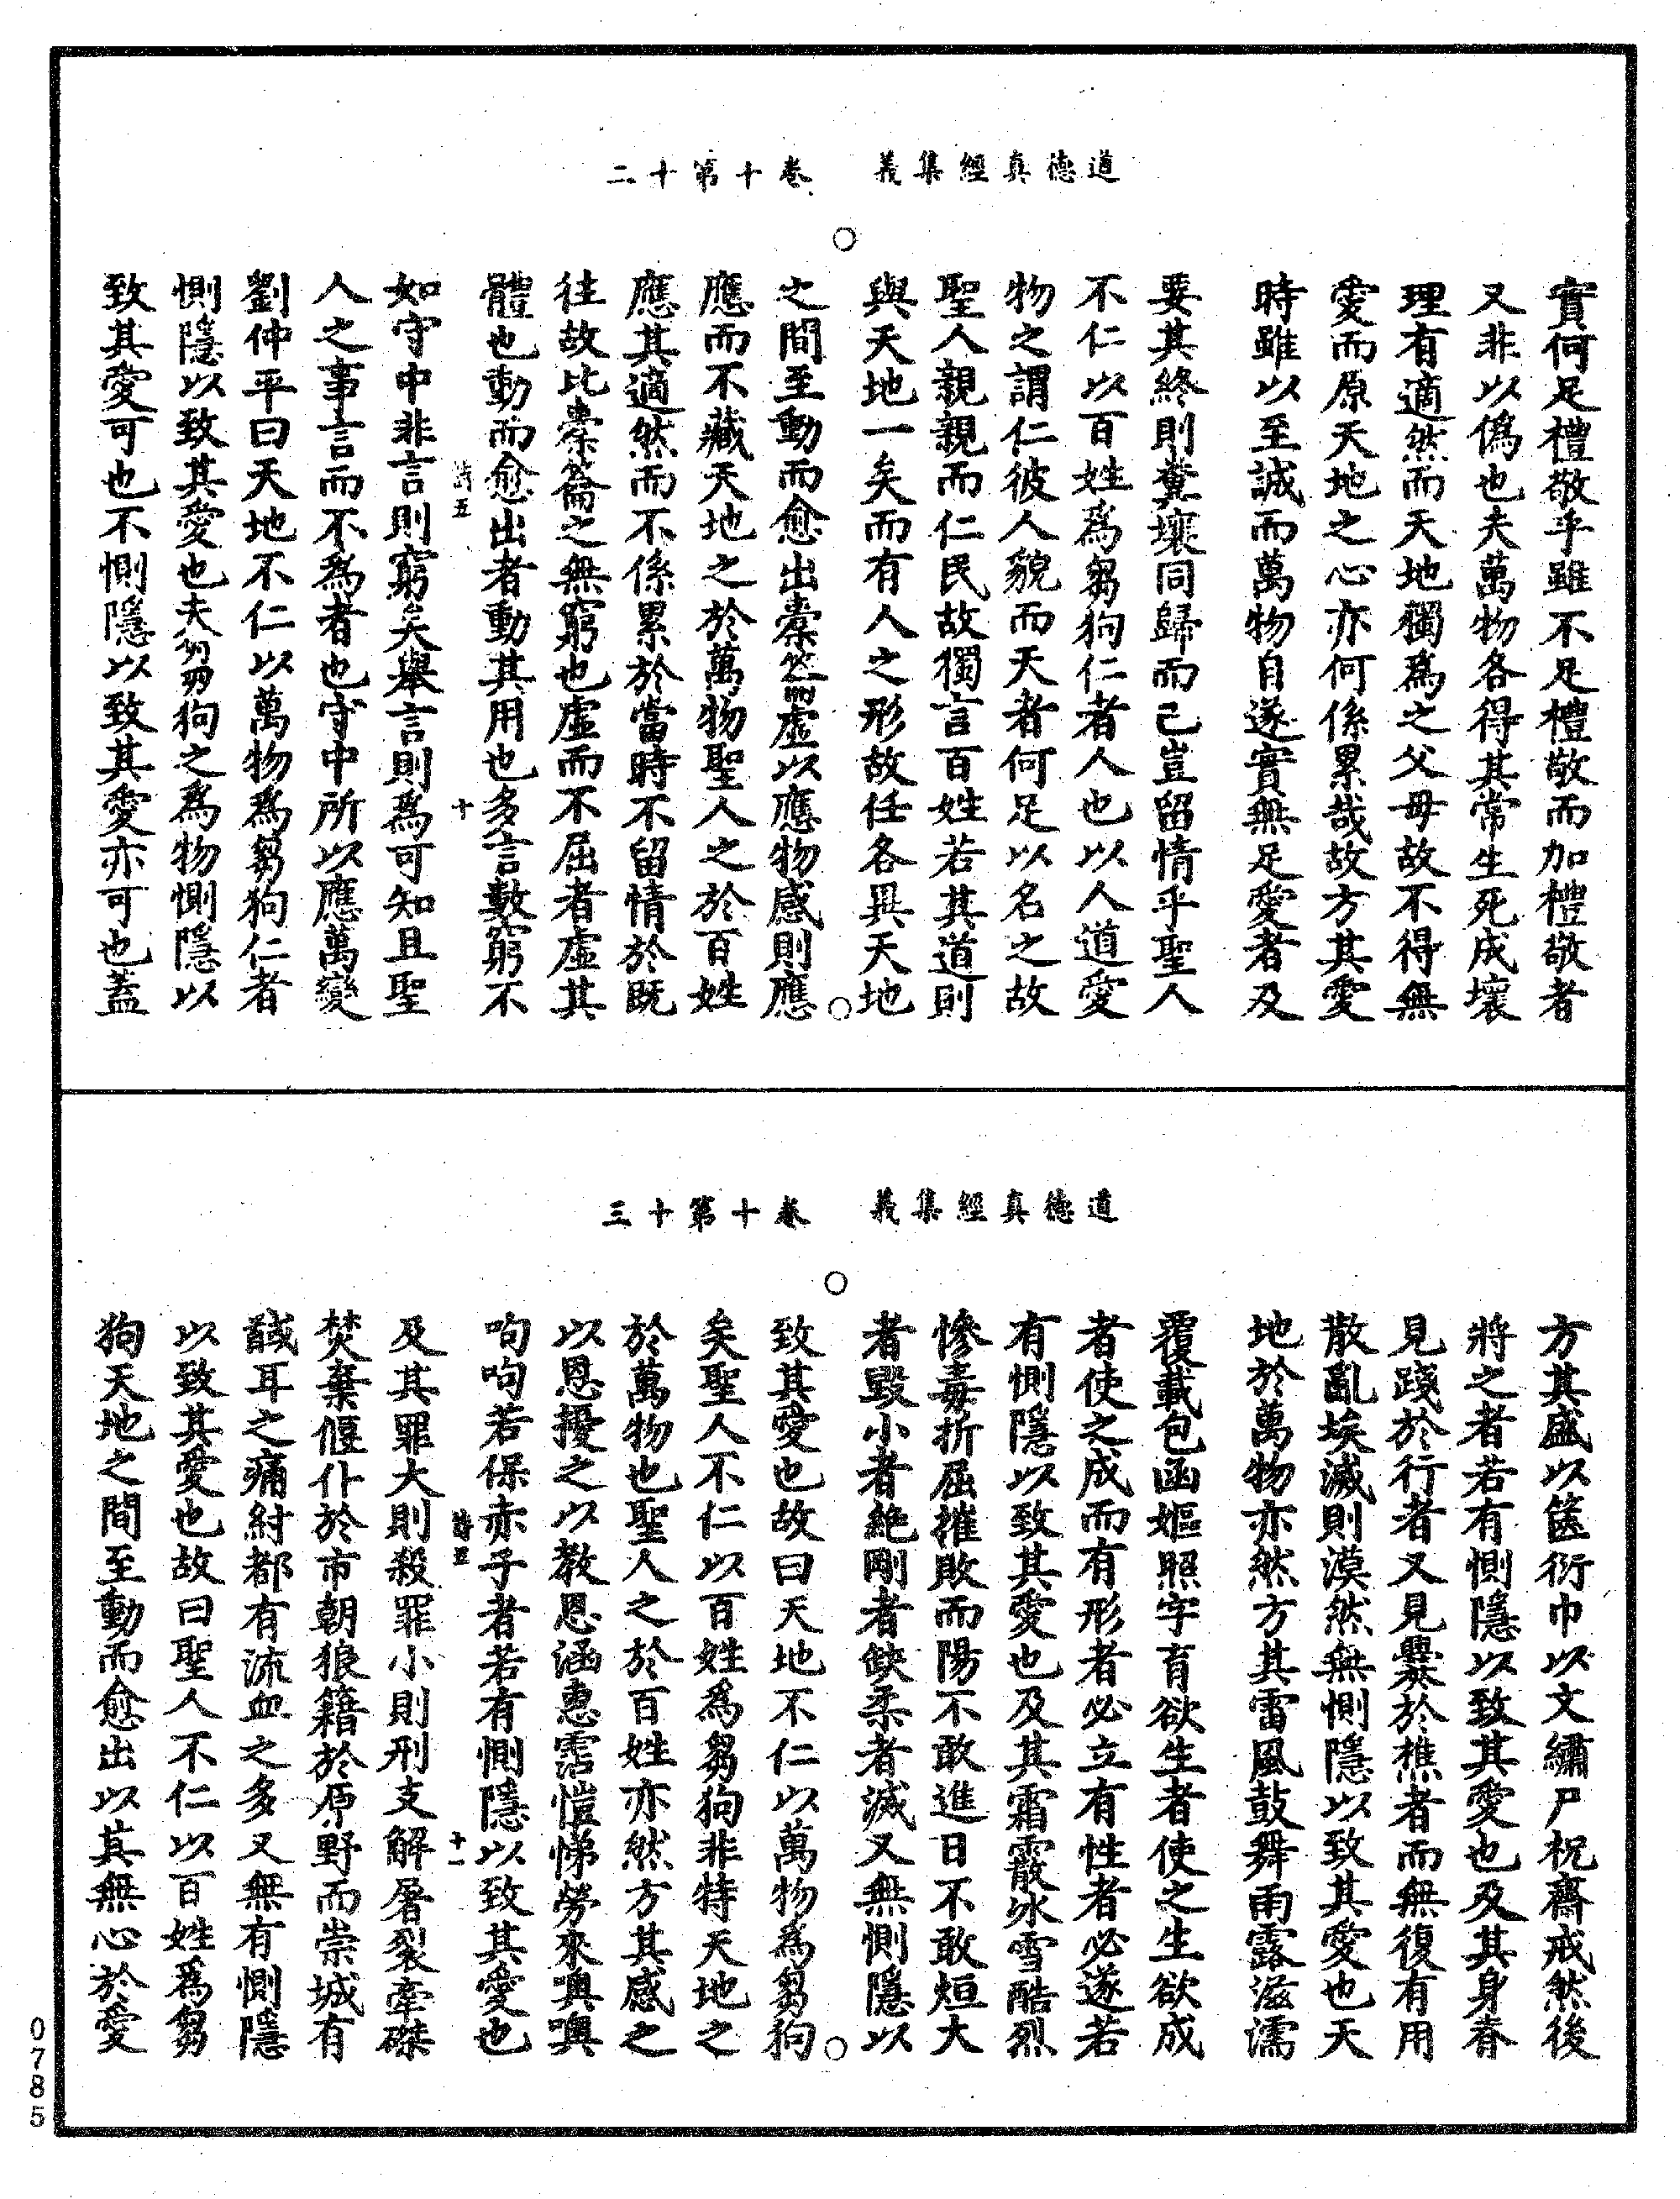 道德真經集義　卷十第十二
實何足禮敬乎雖不足禮敬而加禮敬者
又非以僞也夫萬物各得其常生死成壞
理有適然而天地獨爲之父母故不得無
愛而原天地之心亦何係累哉故方其愛
時雖以至誠而萬物自遂實無足愛者及
要其終則糞壤同歸而已豈留情乎聖人
不仁以百姓爲芻狗仁者人也以人道愛
物之謂仁彼人貌而天者何足以名之故
聖人親親而仁民故獨言百姓若其道則
與天地一矣而有人之形故任各異天地
之間至動而愈出橐籥虛以應物感則應
應而不藏天地之於萬物聖人之於百姓
應其適然而不係累於當時不留情於既
往故比橐籥之無窮也虛而不屈者虛其
體也動而愈出者動其用也多言數窮不
詩五　十
如守中非言則窮矣舉言則爲可知且聖
人之事言而不爲者也守中所以應萬變
劉仲平曰天地不仁以萬物爲芻狗仁者
惻隱以致其愛也夫芻狗之爲物惻隱以
致其愛可也不惻隱以致其愛亦可也蓋
道德真經集義　卷十第十三
方其盛以篋衍巾以文繡尸祝齋戒然後
將之者若有惻隱以致其愛也及其身脊
見踐於行者又見爨於樵者而無復有用
散亂埃滅則漠然無惻隱以致其愛也天
地於萬物亦然方其雷風鼓舞雨露滋濡
覆載包函嫗照字育欲生者使之生欲成
者使之成而有形者必立有性者必遂若
有惻隱以致其愛也及其霜霰冰雪酷烈
慘毒折屈摧敗而陽不敢進日不敢烜大
者毀小者絶剛者缺柔者滅又無惻隱以
致其愛也故曰天地不仁以萬物爲芻狗
矣聖人不仁以百姓爲芻狗非特天地之
於萬物也聖人之於百姓亦然方其感之
以恩擾之以教恩涵惠霑愷悌勞來噢噢
呴呴若保赤子者若有惻隱以致其愛也
詩五　十一
及其罪大則殺罪小則刑支解屠裂牽磔
焚棄偃仆於市朝狼籍於原野而崇城有
馘耳之痛紂都有流血之多又無有惻隱
以致其愛也故曰聖人不仁以百姓爲芻
狗天地之間至動而愈出以其無心於愛
0785